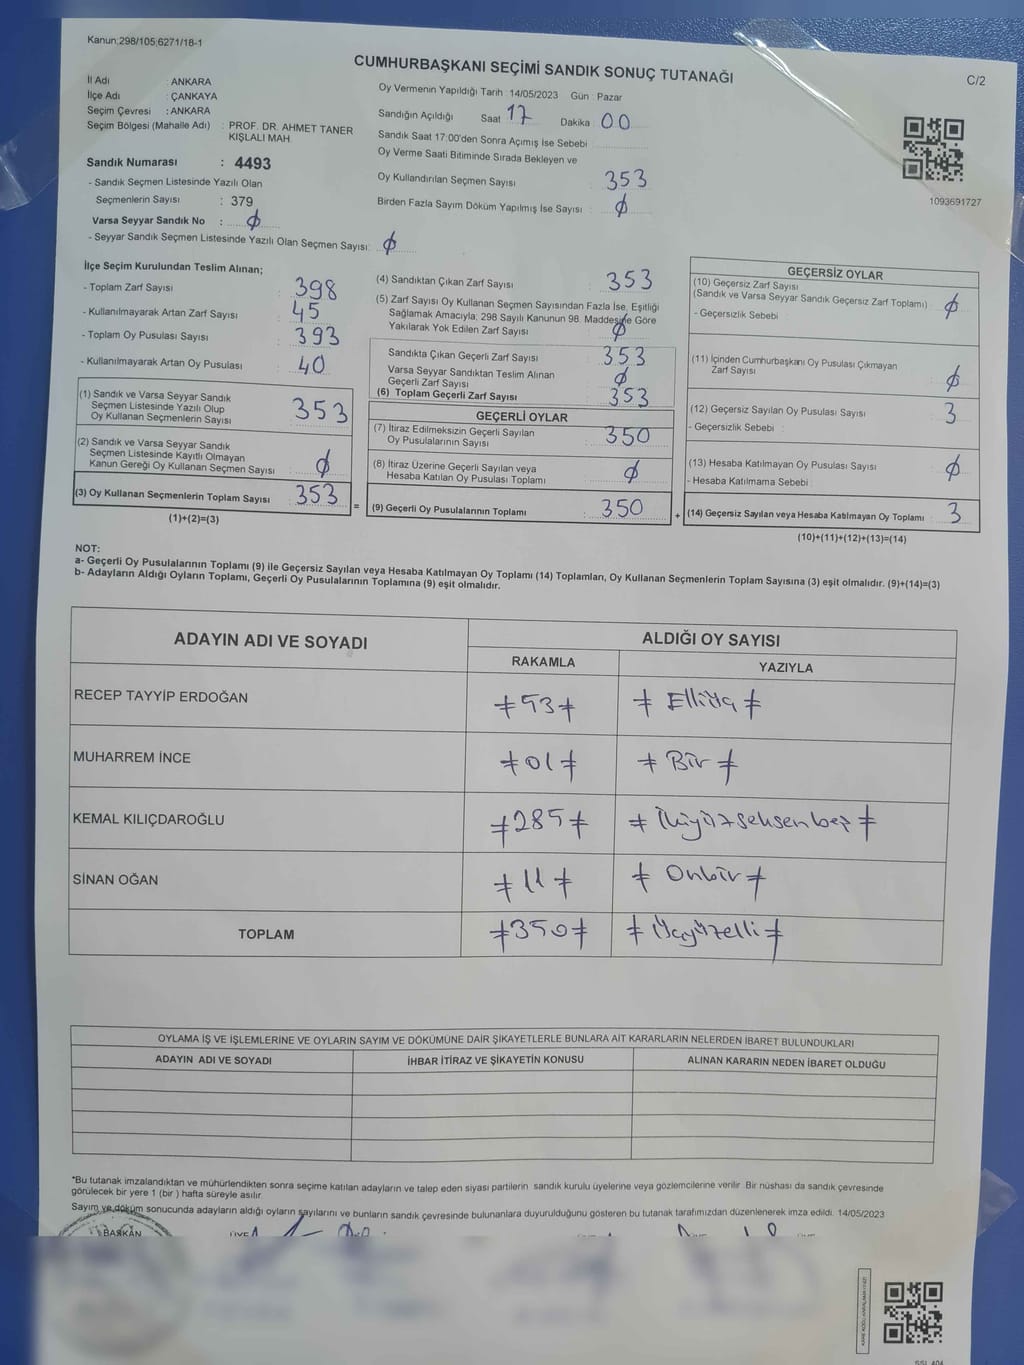 Kanun:298/105;6271/18-1
CUMHURBAŞKANI SEÇİMİ SANDIK SONUÇ TUTANAĞI
C/2
İl Adı : ANKARA
İlçe Adı : ÇANKAYA
Seçim Çevresi : ANKARA
Seçim Bölgesi (Mahalle Adı) : PROF. DR. AHMET TANER
KIŞLALI MAH.
Sandık Numarası : 4493
- Sandık Seçmen Listesinde Yazılı Olan
Seçmenlerin Sayısı : 379
Varsa Seyyar Sandık No : ϕ
- Seyyar Sandık Seçmen Listesinde Yazılı Olan Seçmen Sayısı: ϕ
Oy Vermenin Yapıldığı Tarih : 14/05/2023 Gün : Pazar
Sandığın Açıldığı Saat 17 Dakika 00
Sandık Saat 17:00'den Sonra Açımış İse Sebebi
Oy Verme Saati Bitiminde Sırada Bekleyen ve
Oy Kullandırılan Seçmen Sayısı 353
Birden Fazla Sayım Döküm Yapılmış İse Sayısı : ϕ
1093691727
İlçe Seçim Kurulundan Teslim Alınan;
- Toplam Zarf Sayısı : 398
- Kullanılmayarak Artan Zarf Sayısı : 45
- Toplam Oy Pusulası Sayısı : 393
- Kullanılmayarak Artan Oy Pusulası : 40
(1) Sandık ve Varsa Seyyar Sandık
Seçmen Listesinde Yazılı Olup
Oy Kullanan Seçmenlerin Sayısı : 353
(2) Sandık ve Varsa Seyyar Sandık
Seçmen Listesinde Kayıtlı Olmayan
Kanun Gereği Oy Kullanan Seçmen Sayısı : ϕ
(3) Oy Kullanan Seçmenlerin Toplam Sayısı : 353
(1)+(2)=(3)
=
(4) Sandıktan Çıkan Zarf Sayısı : 353
(5) Zarf Sayısı Oy Kullanan Seçmen Sayısından Fazla İse, Eşitliği
Sağlamak Amacıyla; 298 Sayılı Kanunun 98. Maddesine Göre
Yakılarak Yok Edilen Zarf Sayısı : ϕ
Sandıkta Çıkan Geçerli Zarf Sayısı : 353
Varsa Seyyar Sandıktan Teslim Alınan
Geçerli Zarf Sayısı : ϕ
(6) Toplam Geçerli Zarf Sayısı : 353
GEÇERLİ OYLAR
(7) İtiraz Edilmeksizin Geçerli Sayılan
Oy Pusulalarının Sayısı : 350
(8) İtiraz Üzerine Geçerli Sayılan veya
Hesaba Katılan Oy Pusulası Toplamı : ϕ
(9) Geçerli Oy Pusulalarının Toplamı : 350
+
GEÇERSİZ OYLAR
(10) Geçersiz Zarf Sayısı
(Sandık ve Varsa Seyyar Sandık Geçersiz Zarf Toplamı) : ϕ
- Geçersizlik Sebebi :
(11) İçinden Cumhurbaşkanı Oy Pusulası Çıkmayan
Zarf Sayısı : ϕ
(12) Geçersiz Sayılan Oy Pusulası Sayısı : 3
- Geçersizlik Sebebi :
(13) Hesaba Katılmayan Oy Pusulası Sayısı : ϕ
- Hesaba Katılmama Sebebi :
(14) Geçersiz Sayılan veya Hesaba Katılmayan Oy Toplamı : 3
(10)+(11)+(12)+(13)=(14)
NOT:
a- Geçerli Oy Pusulalarının Toplamı (9) ile Geçersiz Sayılan veya Hesaba Katılmayan Oy Toplamı (14) Toplamları, Oy Kullanan Seçmenlerin Toplam Sayısına (3) eşit olmalıdır. (9)+(14)=(3)
b- Adayların Aldığı Oyların Toplamı, Geçerli Oy Pusulalarının Toplamına (9) eşit olmalıdır.
ADAYIN ADI VE SOYADI
ALDIĞI OY SAYISI
RAKAMLA YAZIYLA
RECEP TAYYİP ERDOĞAN ≠53≠ ≠ Elliüç ≠
MUHARREM İNCE ≠01≠ ≠ Bir ≠
KEMAL KILIÇDAROĞLU ≠285≠ ≠ İkiyüzseksenbeş ≠
SİNAN OĞAN ≠11≠ ≠ Onbir ≠
TOPLAM ≠350≠ ≠ Üçyüzelli ≠
OYLAMA İŞ VE İŞLEMLERİNE VE OYLARIN SAYIM VE DÖKÜMÜNE DAİR ŞİKAYETLERLE BUNLARA AİT KARARLARIN NELERDEN İBARET BULUNDUKLARI
ADAYIN ADI VE SOYADI İHBAR İTİRAZ VE ŞİKAYETİN KONUSU ALINAN KARARIN NEDEN İBARET OLDUĞU
*Bu tutanak imzalandıktan ve mühürlendikten sonra seçime katılan adayların ve talep eden siyası partilerin sandık kurulu üyelerine veya gözlemcilerine verilir. Bir nüshası da sandık çevresinde
görülecek bir yere 1 (bir ) hafta süreyle asılır.
Sayım ve döküm sonucunda adayların aldığı oyların sayılarını ve bunların sandık çevresinde bulunanlara duyurulduğunu gösteren bu tutanak tarafımızdan düzenlenerek imza edildi. 14/05/2023
BAŞKAN